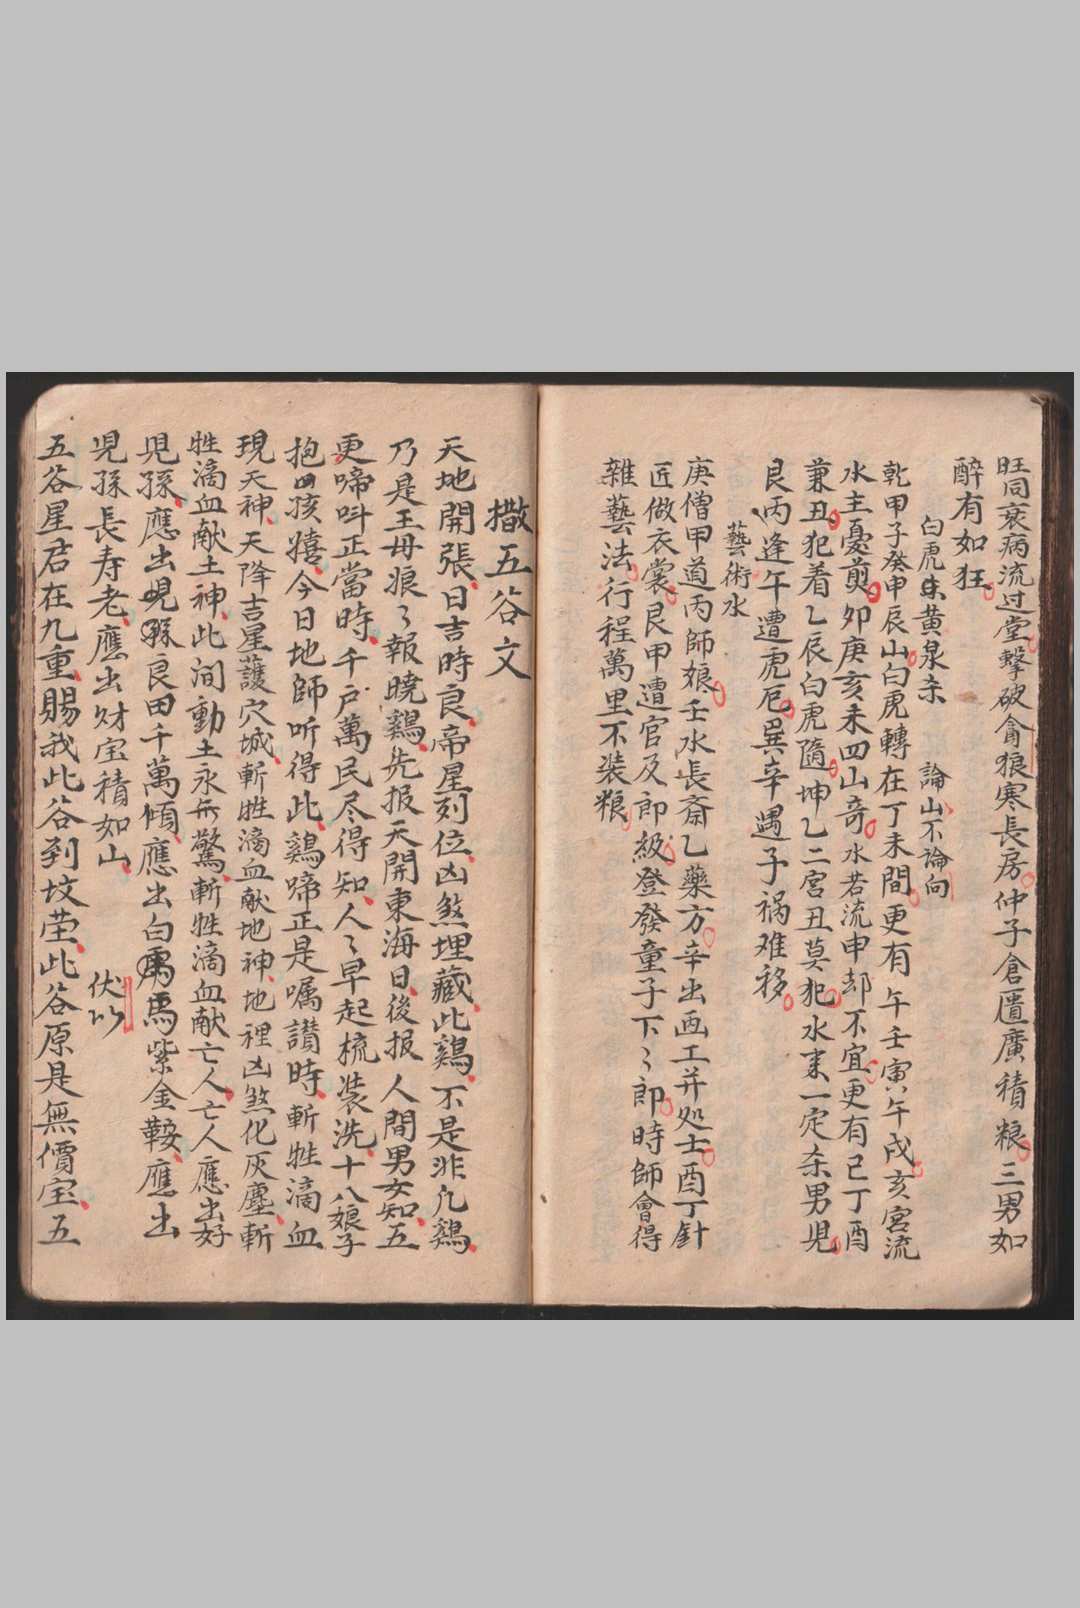 旺同衰病流过堂擊破禽狼寒長房仲子倉匱廣積粮三男如
醉有如狂
白虎黄泉杀 論山不論向
乾甲子癸申辰山白虎轉在丁未間更有午壬寅午戌亥宮流
水主憂煎卯庚亥未四山奇水若流申却不宜更有己丁酉
兼丑犯着乙辰白虎隨坤乙二宮丑莫犯水来一定杀男児
艮丙逢午遭虎厄巽辛遇子祸难移
藝術水
庚僧甲道丙師娘壬水長斎乙藥方辛出画工并処士酉丁針
匠做衣裳艮甲遭官及郎級登發童子下〻郎時師會得
雜藝法行程萬里不装粮
撒五谷文
天地開張日吉時良帝星列位凶煞埋藏此鷄不是非凡鷄
乃是王母娘〻報曉鷄先报天開東海日後报人間男女知五
更啼叫正當時千户萬民尽得知人〻早起梳装洗十八娘子
抱孩嬉今日地師听得此鷄啼正是嘱讃時斬牲滴血
現天神天降吉星護穴城斬牲滴血献地神地裡凶煞化灰塵斬
牲滴血献土神此澗動土永無驚斬牲滴血献亡人亡人應出好
児孫應出良田千萬傾應出白馬紫金鞍應出
児孫長寿老應出财宝積如山 伏以
五谷星君在九重賜我此谷到坟茔此谷原是無價宝五